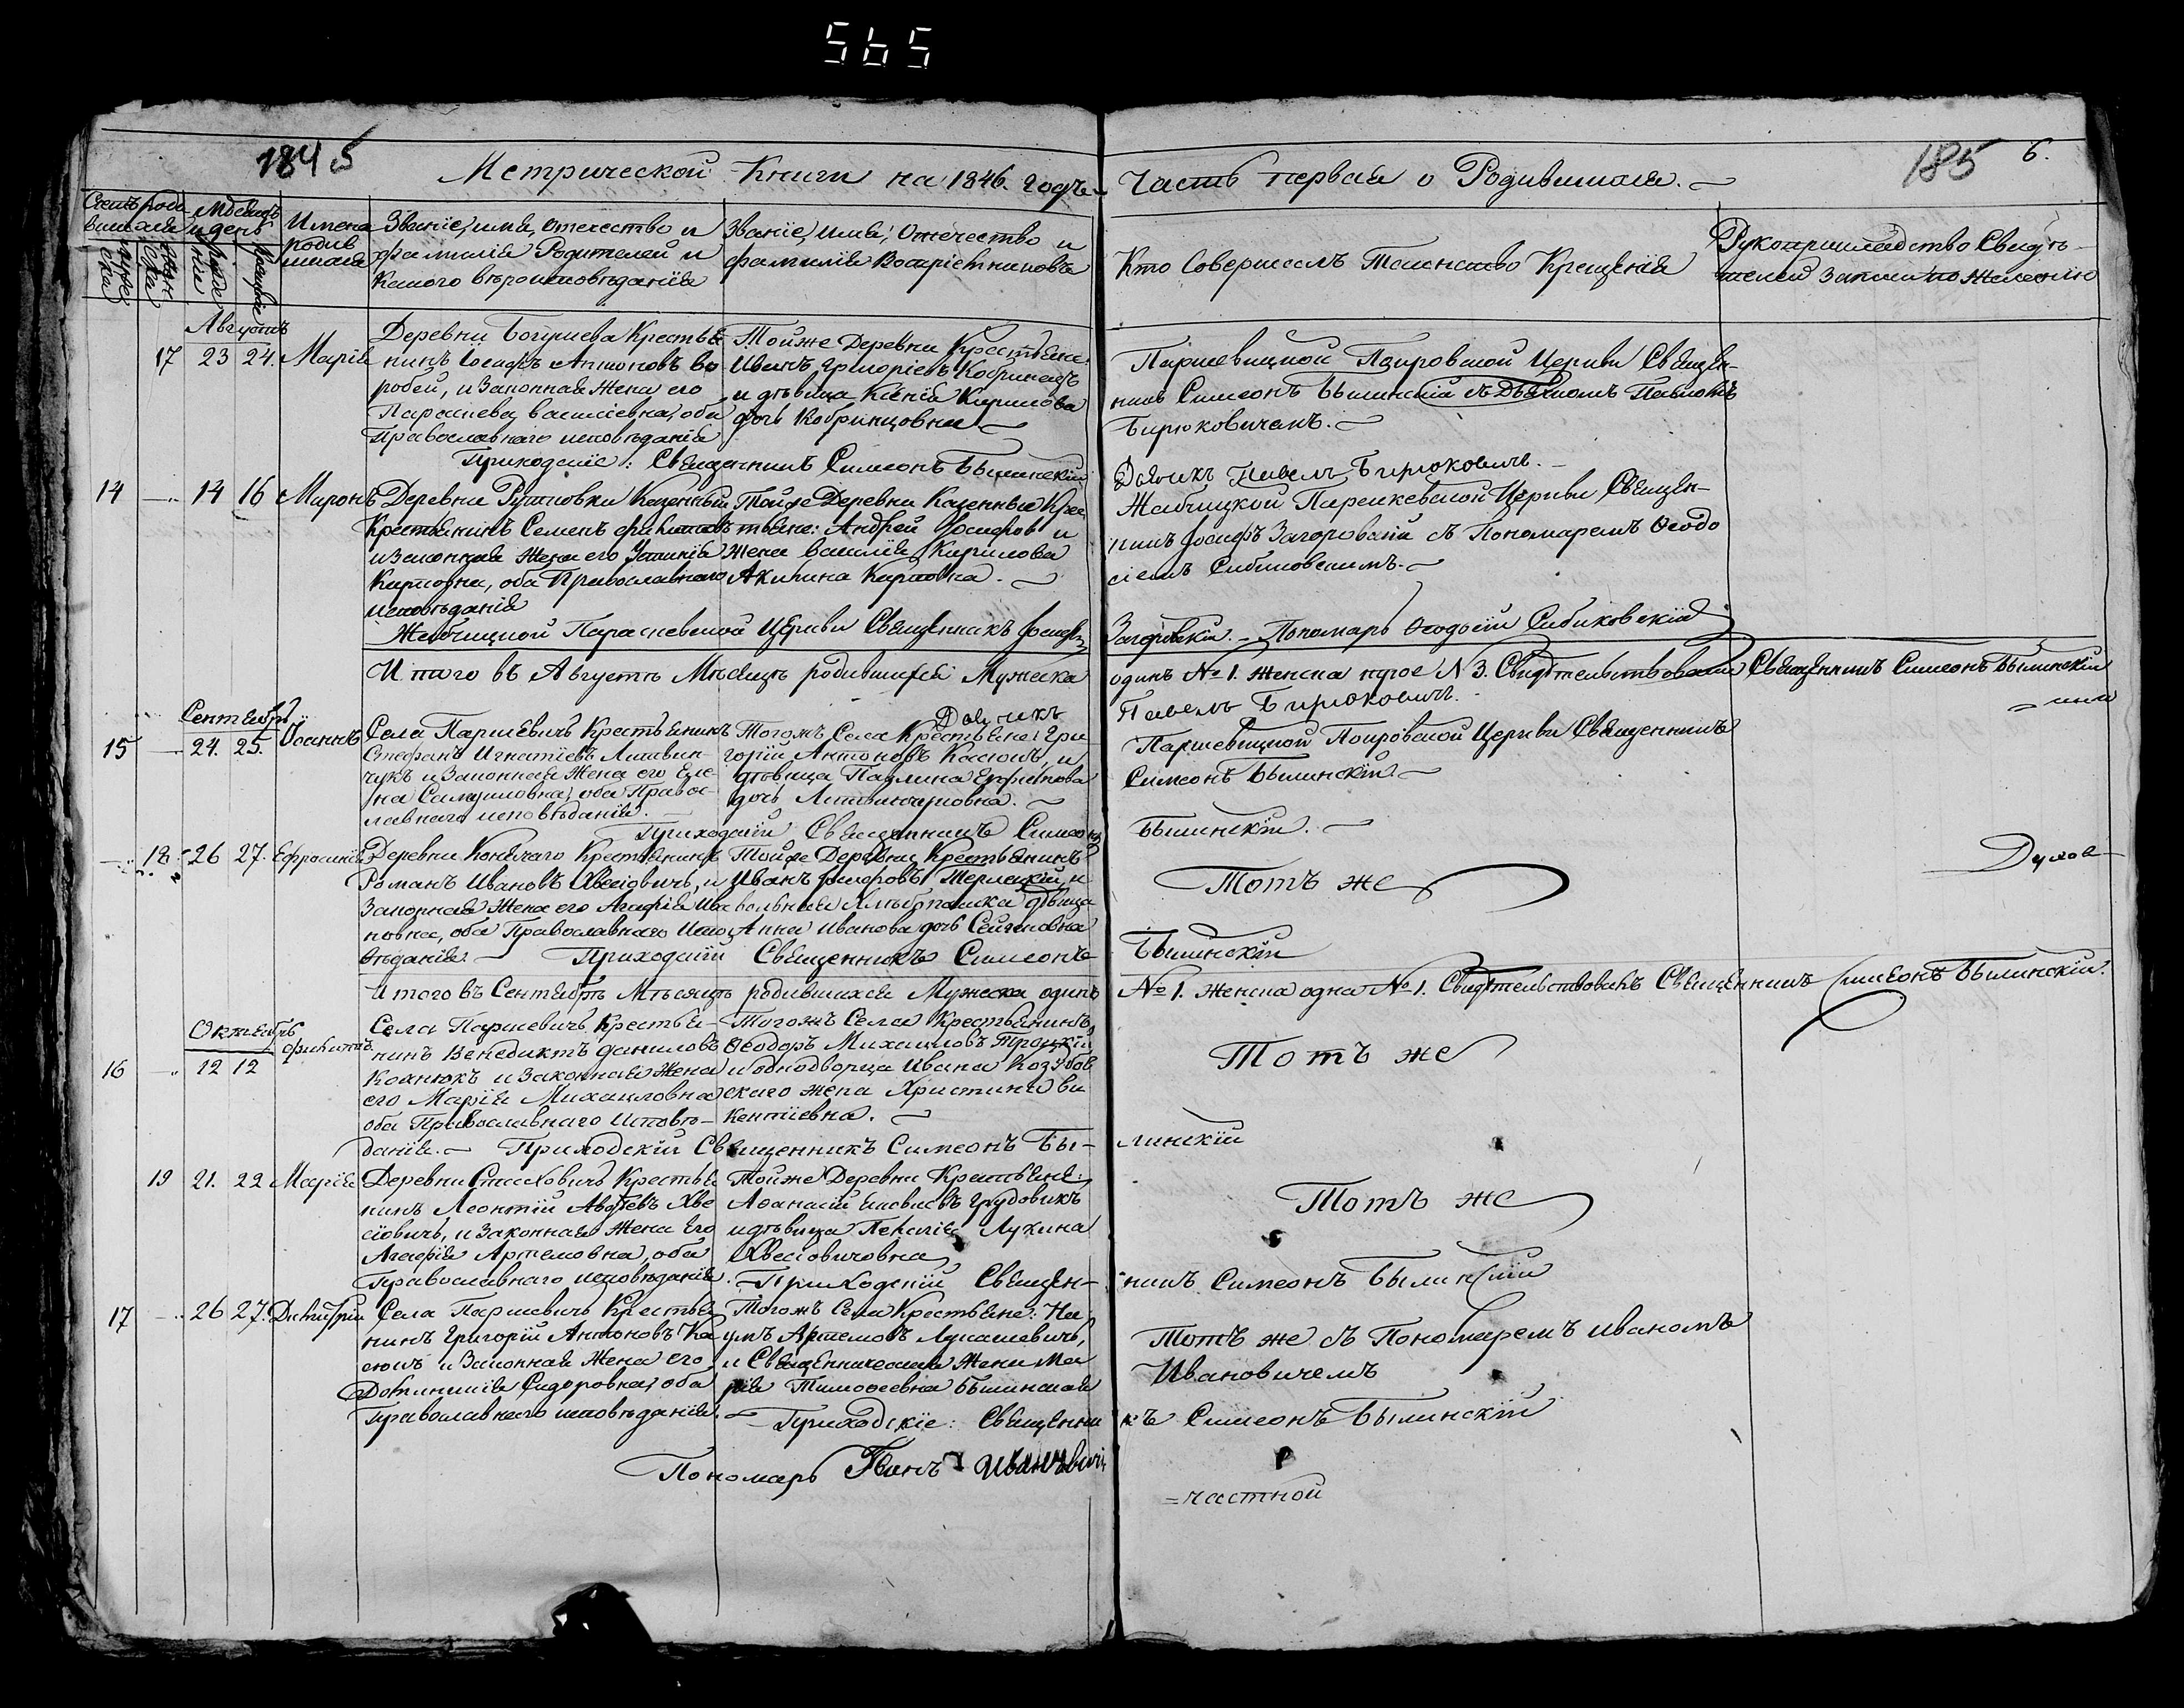 565
1845
185
6.
Метрической Книги на 1846. годъ Часть первая о Родившихся.
Счетъ роди
вшихся
Мѣсяцъ
и день
Имена
родив
шихся
Званіе, имя, отечество и
фамилія Родителей и
Какого вѣроисповѣданія
Званіе, имя, Отечество и
фамилія Воспріемниковъ
Кто Совершалъ Таинство Крещенія
Рукоприкладство Свидѣ-
телей записи по желанію
мужес
ка
жен
ска
рожде
нія
крещенія
Августъ
17 23 24. Марія
Деревни Крестья
нинъ Іосифъ Антоновъ Во
робей, и Законная Жена его
Параскева Василіевна, оба
Православнаго исповѣданія
Тойже Деревни Крестьяне:
Иванъ Григоріевъ Кобринецъ
и дѣвица Ксенія Кирилова
дочь Кобринцовна
Паршевицкой Покровской Церкви Священ-
никъ Симеонъ Былинскій съ Дьячкомъ Павломъ
Бирюковичемъ.
Приходскіе: Священникъ Симеонъ Былинскій
Дьячикъ Павелъ Бирюковичь.
14 14 16 Миронъ
Деревни Казенный
Крестьянинъ Семенъ Филиповъ
и законная Жена его
Карповна, оба Православнаго
исповѣданія
Тойже Деревни Казенные Крес
тьяне: Андрей Іосифов и
жена Василія Кирилова
Акилина Карповна.
Жабчицкой Параскевской Церкви Священ-
никъ Іосифъ Загоровскій съ Пономаремъ Ѳеодо
сіемъ Сибиковскимъ.
Жабчицкой Параскевской Церкви Священникъ Іосифъ
Загоровскій. Пономарь Ѳеодосій Сибиковскій
Итого въ Августѣ Мѣсяцѣ родившихся Мужеска
одинъ №1. Женска трое №3. Свидѣтельствовали Священникъ Симеонъ Былинскій
Дьячикъ
Павелъ Бирюковичь.
Сентябрь
15 24. 25. Іоаннъ
Села Паршевичь Крестьянинъ
Стефанъ Игнатіевъ Литвин-
чукъ и Законная Жена его Еле-
на Самуиловна, оба Правос-
лавнаго исповѣданія.
Тогожъ Села Крестьяне: Гри
горій Антоновъ Касюкъ, и
дѣвица Паулина
дочь
Паршевицкой Покровской Церкви Священникъ
Симеонъ Былинскій.
Приходскій Священникъ Симеонъ
Былинскій.
18 26 27. Ефросинія
Деревни Крестьянинъ
Романъ Ивановъ Хвесіовичь, и
Законная Жена его Агафія Ива
новна, оба Православнаго Испо
вѣданія.
Тойже Деревни Крестьянинъ
Иванъ Ѳеодоровъ и
вольная дѣвица
Анна Иванова дочь
Тотъ же
Духов-
Приходскій Священникъ Симеонъ
Былинскій
Итого въ Сентябрѣ Мѣсяцѣ родившихся Мужеска одинъ
№1. Женска одна №1. Свидѣтельствовалъ Священникъ Симеонъ Былинскій.
Октябрь
16 12 12 Филиппъ
Села Паршевичь Крестья-
нинъ Венедиктъ Даниловъ
Кохнюкъ и Законная Жена
его Марія Михаиловна
оба Православнаго Исповѣ-
данія.
Тогожъ Села Крестьянинъ
Ѳеодоръ Михаиловъ Троцкій
и однодворца Ивана Козубов
скаго жена Христина Ви
кентіевна.
Тотъ же
Приходскій Священникъ Симеонъ Бы-
линскій
19 21. 22 Марія
Деревни Стаховичь Крестья
нинъ Леонтій Авдѣевъ Хве
сіовичь, и Законная Жена Его
Агафія Артемовна, оба
Православнаго исповѣданія.
Тойже Деревни Крестьяне:
Аѳанасій
и дѣвица Лукина
Хвесіовичовна
Тотъ же
Приходскій Священ-
никъ Симеонъ Былинскій
17 26 27. Димитрій
Села Паршевичь Крестья
нинъ Григорій Антоновъ Ка
сюкъ и Законная Жена его
Домникія Сидоровна, оба
Православнаго исповѣданія.
Тогожъ Села Крестьяне: На
умъ Артемовъ Лукашевичь,
и Священническая Жена Ма
рія Тимоѳеевна Былинская
Тотъ же съ Пономаремъ Иваномъ
Ивановичемъ
Приходскіе: Священникъ Симеонъ Былинскій
Пономарь Иванъ Ивановичъ
=частной